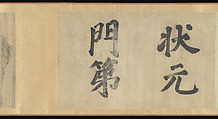 狀元
門第